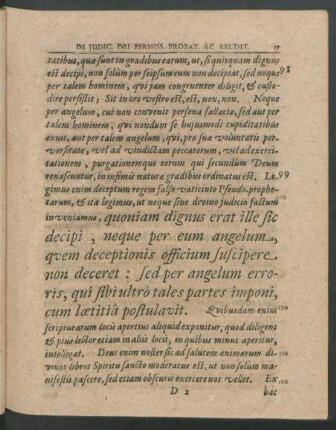 DE JUDIC. DEI PERMISS. PROBAT. AC ERUDIT.
tatibus, quæ sunt in gradibus earum, ut, si quisquam dignus
est decipi, non solùm per seipsum eum non decipiat, sed neque 98
per talem hominem, qvi jam congruenter diligit, & custo-
dire persistit; Sit in ore vestro est, est, non, non. Neque
per angelum, cui non convenit persona fallaciæ, sed aut per
talem hominem, qvi nondum se hujusmodi cupiditatibus
exuit, aut per talem angelum, qvi, pro suæ voluntatis per-
versitate, vel ad vindictam peccatorum, vel ad exerci-
tationem, purgationemque eorum qui secundùm Deum
renascuntur, in infimis naturæ gradibus ordinatus est. Le- 99
gimus enim deceptum regem falso vaticinio Pseudo-prophe-
tarum, & ita legimus, ut neque sine divino judicio factum
inveniamus, quoniam dignus erat ille sic
decipi, neque per eum angelum,
qvem deceptionis officium suscipere
non deceret: sed per angelum erro-
ris, qui sibi ultrò tales partes imponi,
cum lætitiâ postulavit. Qvibusdam enim 100
scripturarum locis apertius aliquid exponitur, quod diligens
& pius lector etiam in aliis locis, in quibus minus aperitur,
intelligat. Deus enim noster sic ad salutem animarum di- 101
vinos libros Spiritu sancto moderatus est, ut non solum ma-
nifestis pascere, sed etiam obscuris exercere nos vellet. Ex 102
D 2 hac